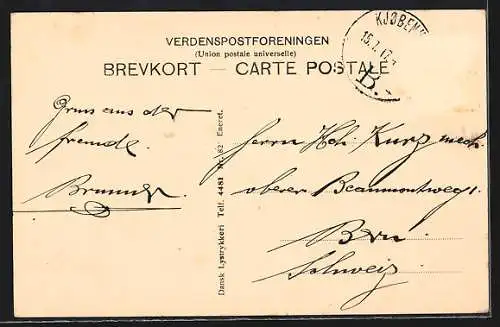 VERDENSPOSTFORENINGEN
(Union postale universelle)
BREVKORT — CARTE POSTALE
KJØBENH
15.7.12
B.
Gruss aus der
fremde.
Brunner
Dansk Lystrykkeri Telf. 4481 Nr. 82 Eneret.
Herrn Hch. Kurz mech.
oberer Beaumontweg 1.
Bern.
Schweiz